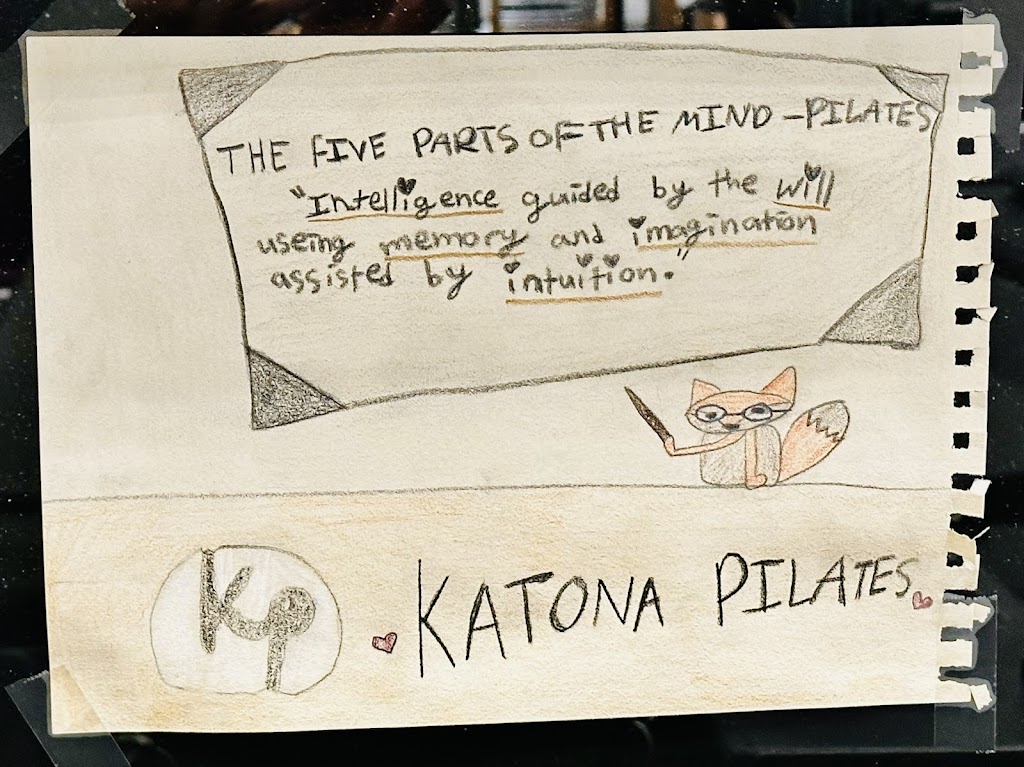 THE FIVE PARTS OF THE MIND - PILATES
"Intelligence guided by the will
useing memory and imagination
assisted by intuition."
KP
KATONA PILATES